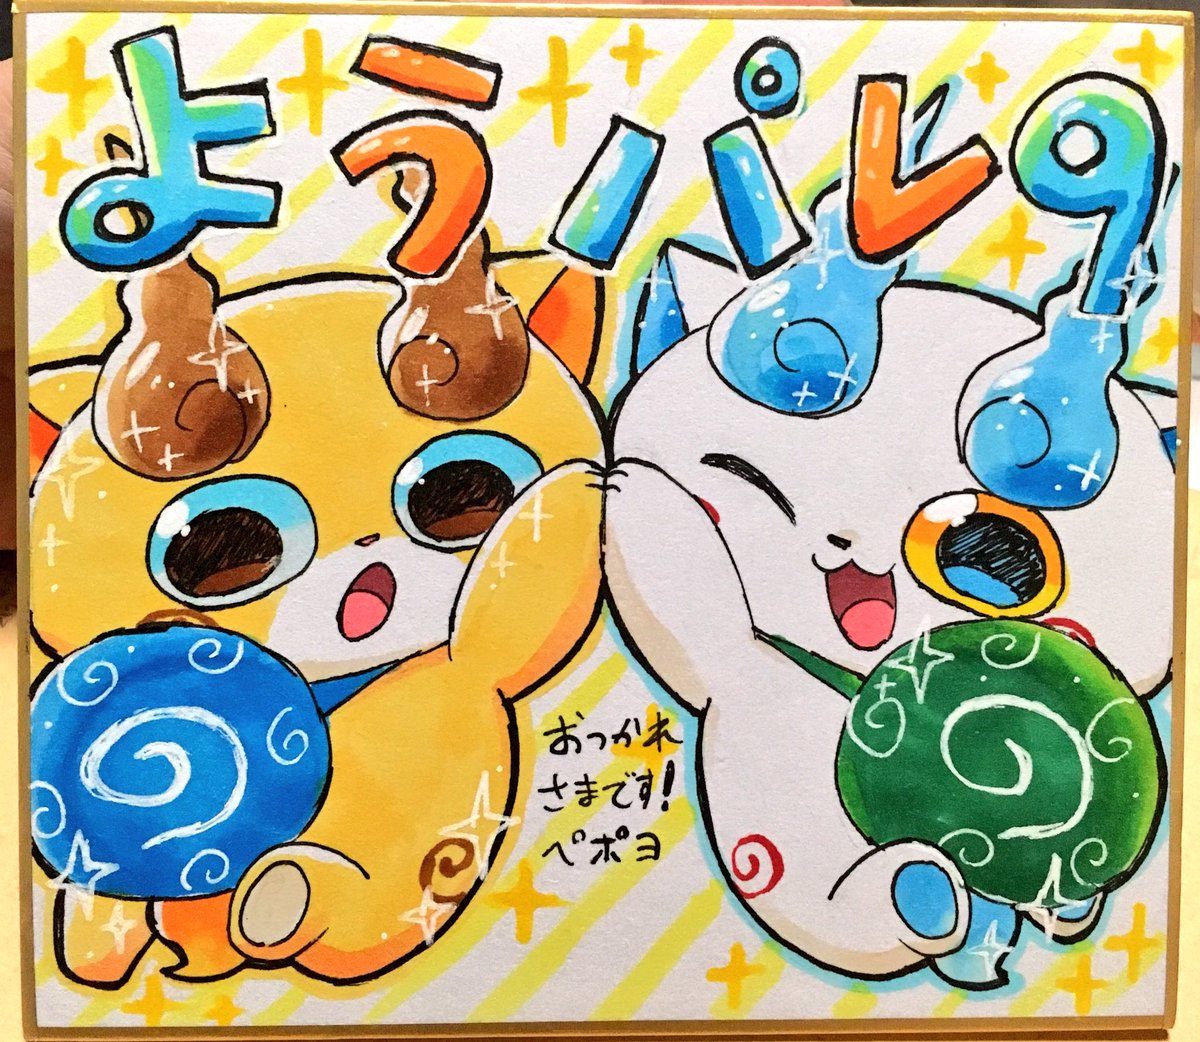 ようパレ9
おつかれ
さまです!
ペポヨ